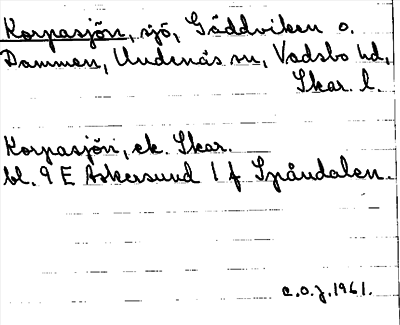 Korpasjön, sjö, Gäddviken o.
Dammen, Undenäs sn, Vadsbo hd,
Skar. l.
Korpasjön, ek. Skar.
bl. 9 E Askersund 1 f Spåndalen.
c.o.j. 1961.